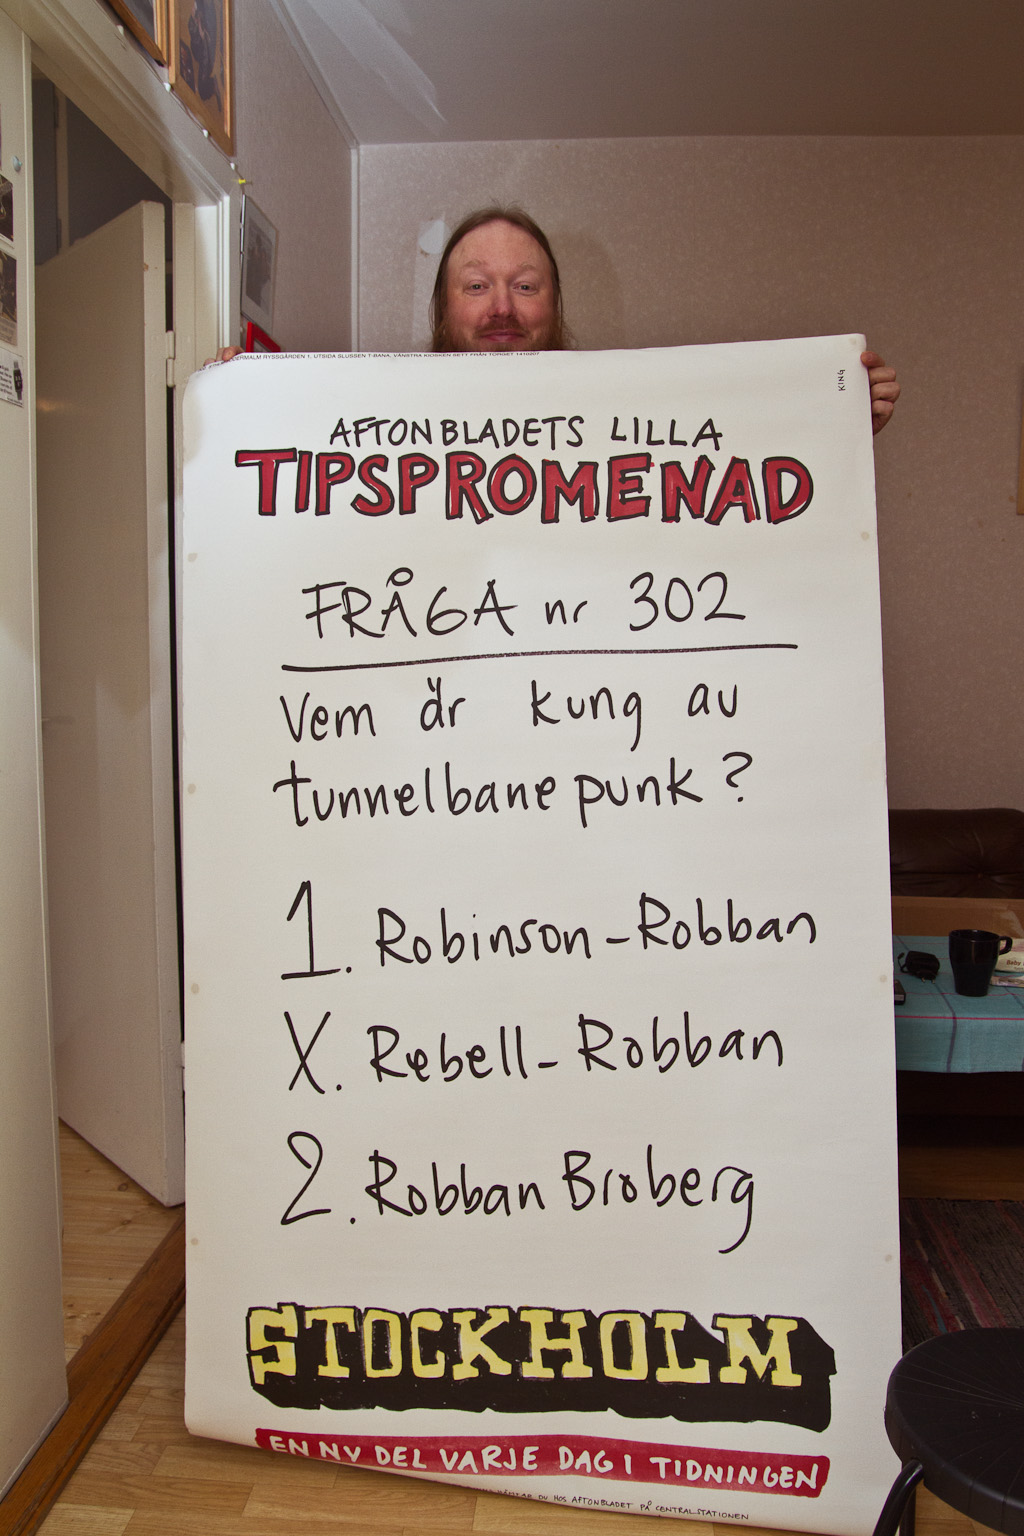 RYSSGÅRDEN 1, UTSIDA SLUSSEN T-BANA, VÄNSTRA KIOSKEN SETT FRÅN TORGET 141020?
KING
AFTONBLADETS LILLA
TIPSPROMENAD
FRÅGA nr 302
Vem är kung av
tunnelbanepunk?
1. Robinson-Robban
X. Rebell-Robban
2. Robban Broberg
STOCKHOLM
EN NY DEL VARJE DAG I TIDNINGEN
HÄMTAR DU HOS AFTONBLADET PÅ CENTRALSTATIONEN